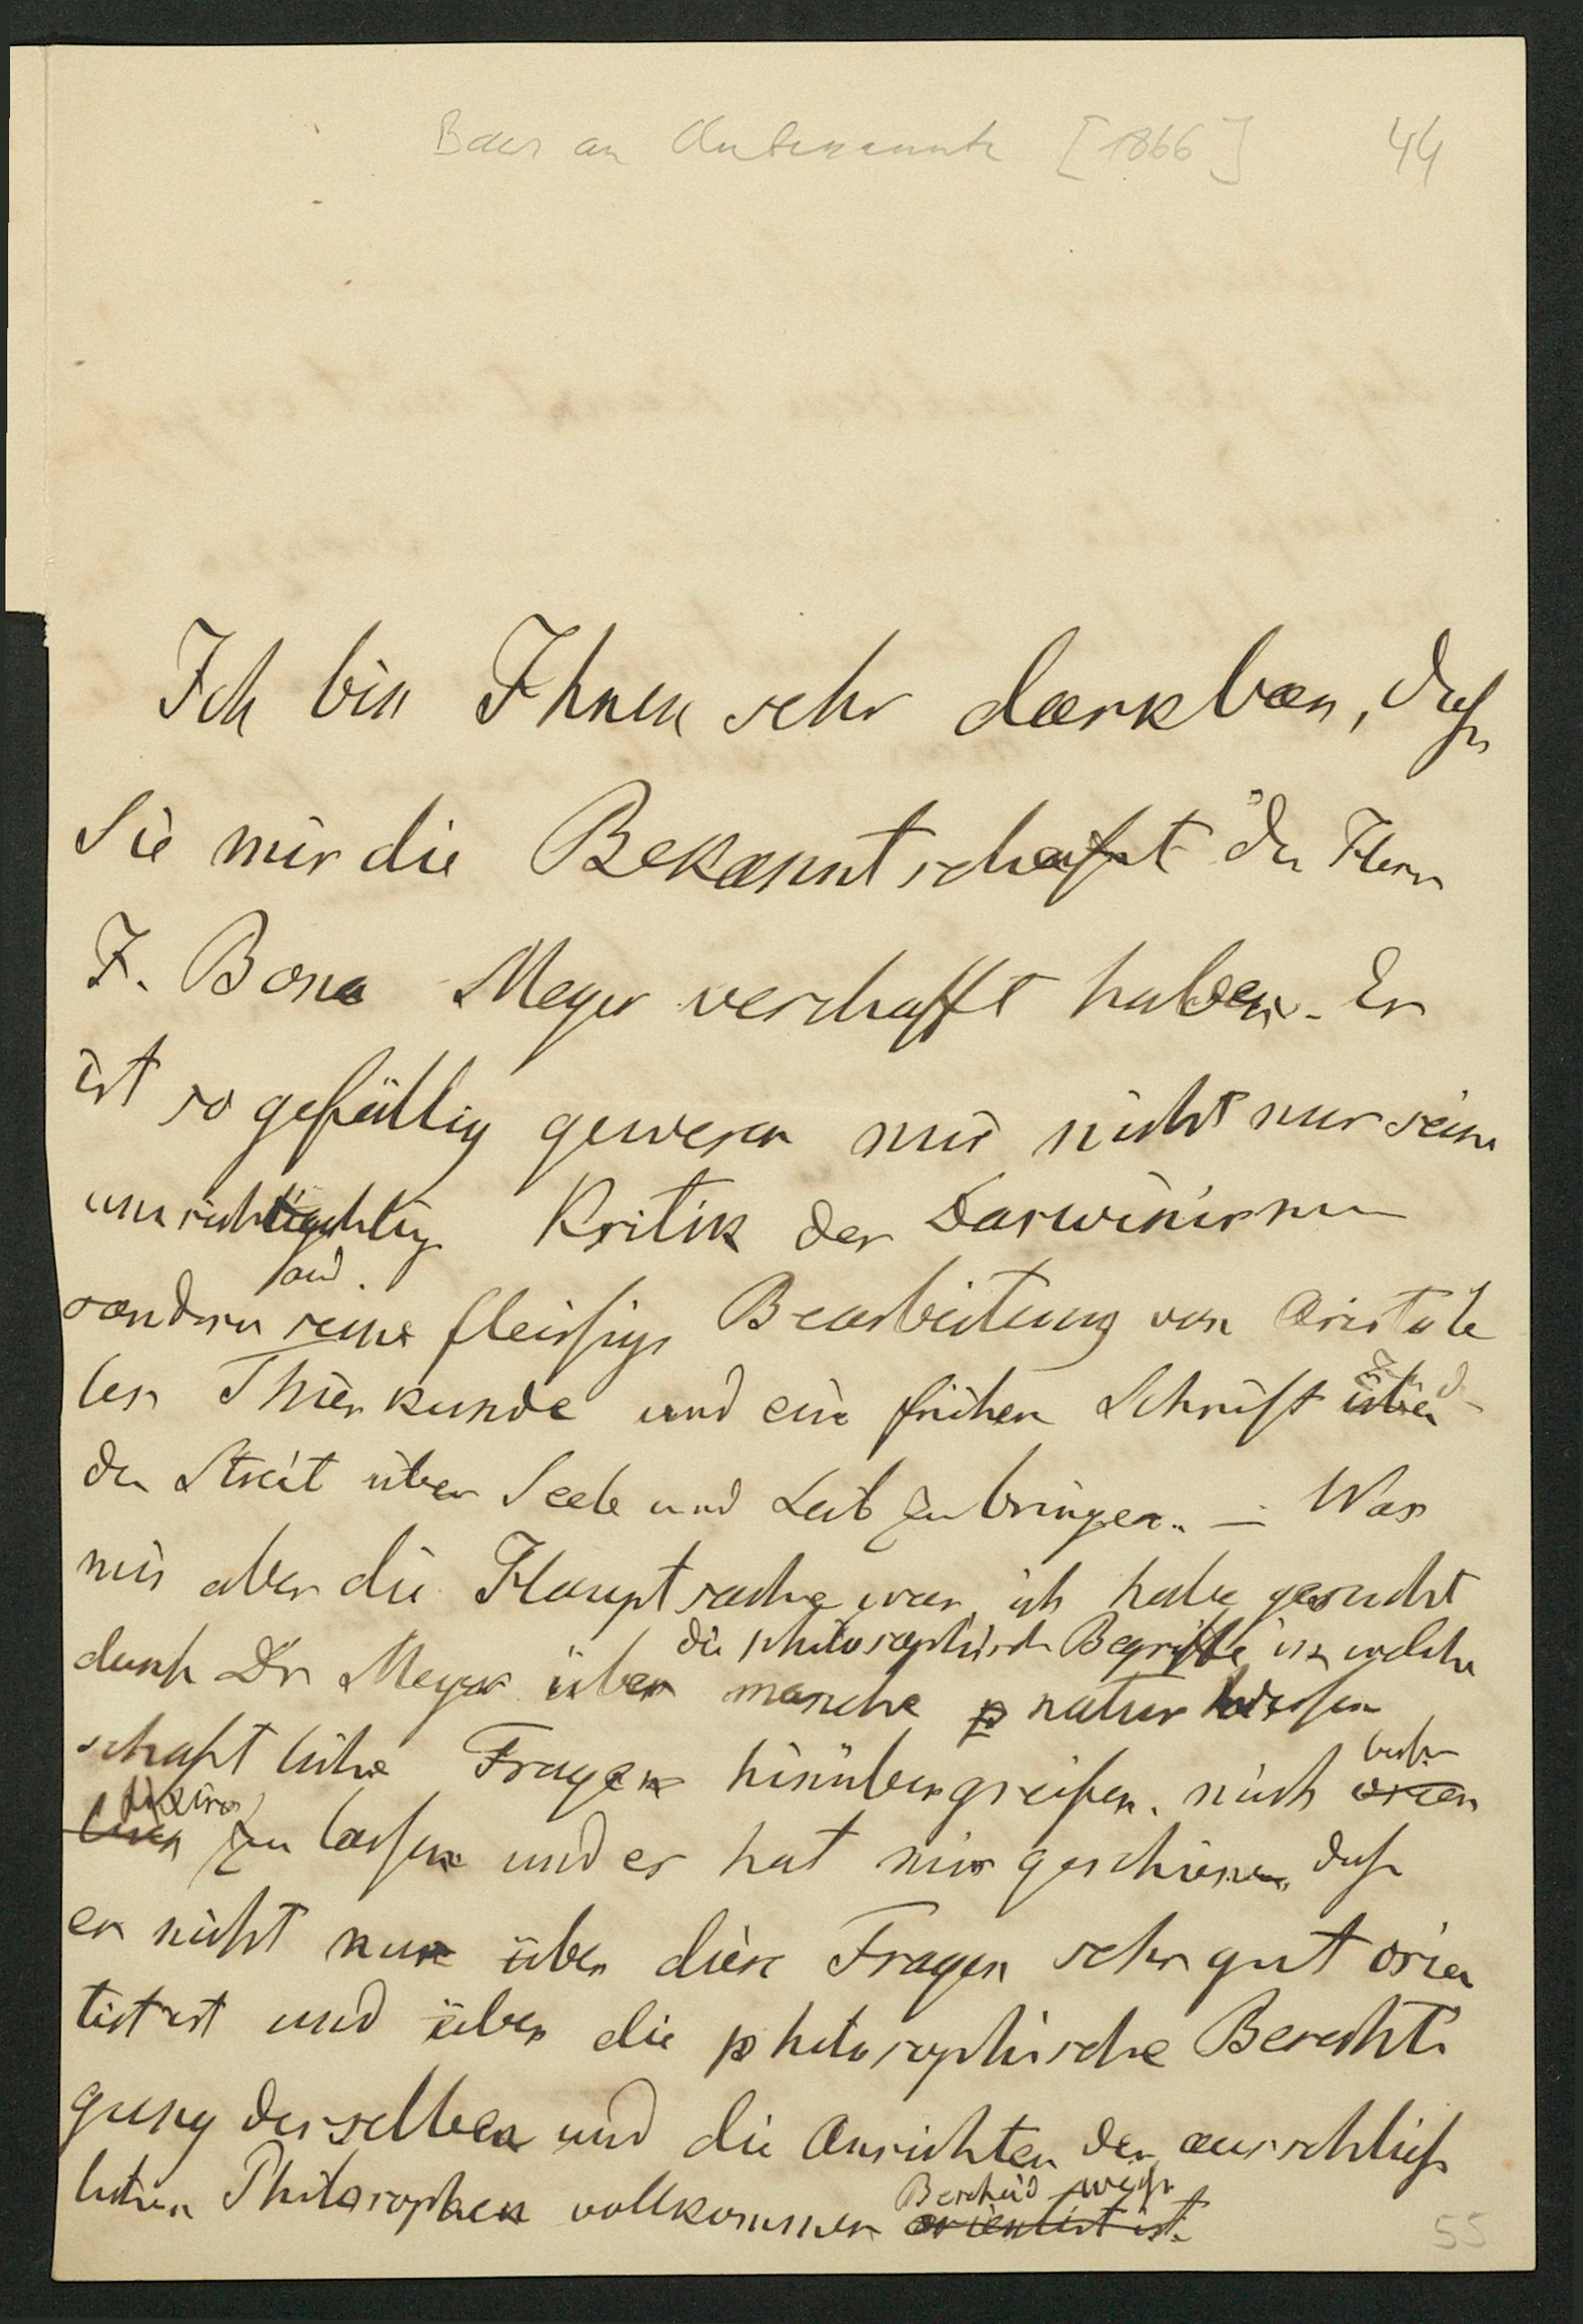 Baer an Unbekannte [1866] 44
Ich bin Ihnen sehr dankbar, daß
Sie mir die Bekanntschaft des Herrn
J. Bona Meyer verschafft haben. Er
ist so gefällig gewesen mir nicht nur seine
umsichtige Kritik des Darwinismus
sondern seine fleissige Bearbeitung von Aristote
les Thierkunde und eine frühere Schrift
den Streit über Seele und Leib zu bringen. – Was
mir aber die Hauptsache war, ich habe gesucht
die philosophische Begriffe in welche
durch Dr Meyer über manche naturwissen
schaftliche Fragen hinübergreifen, mich orien
tiren zu lassen und es hat mir geschienen, daß
er nicht nur über diese Fragen sehr gut orien
tirt ist und über die philosophische Berechti
gung derselben und die Ansichten der ausschließ
lichen Philosophen vollkommen orientirt ist.
Bescheid weiß
55